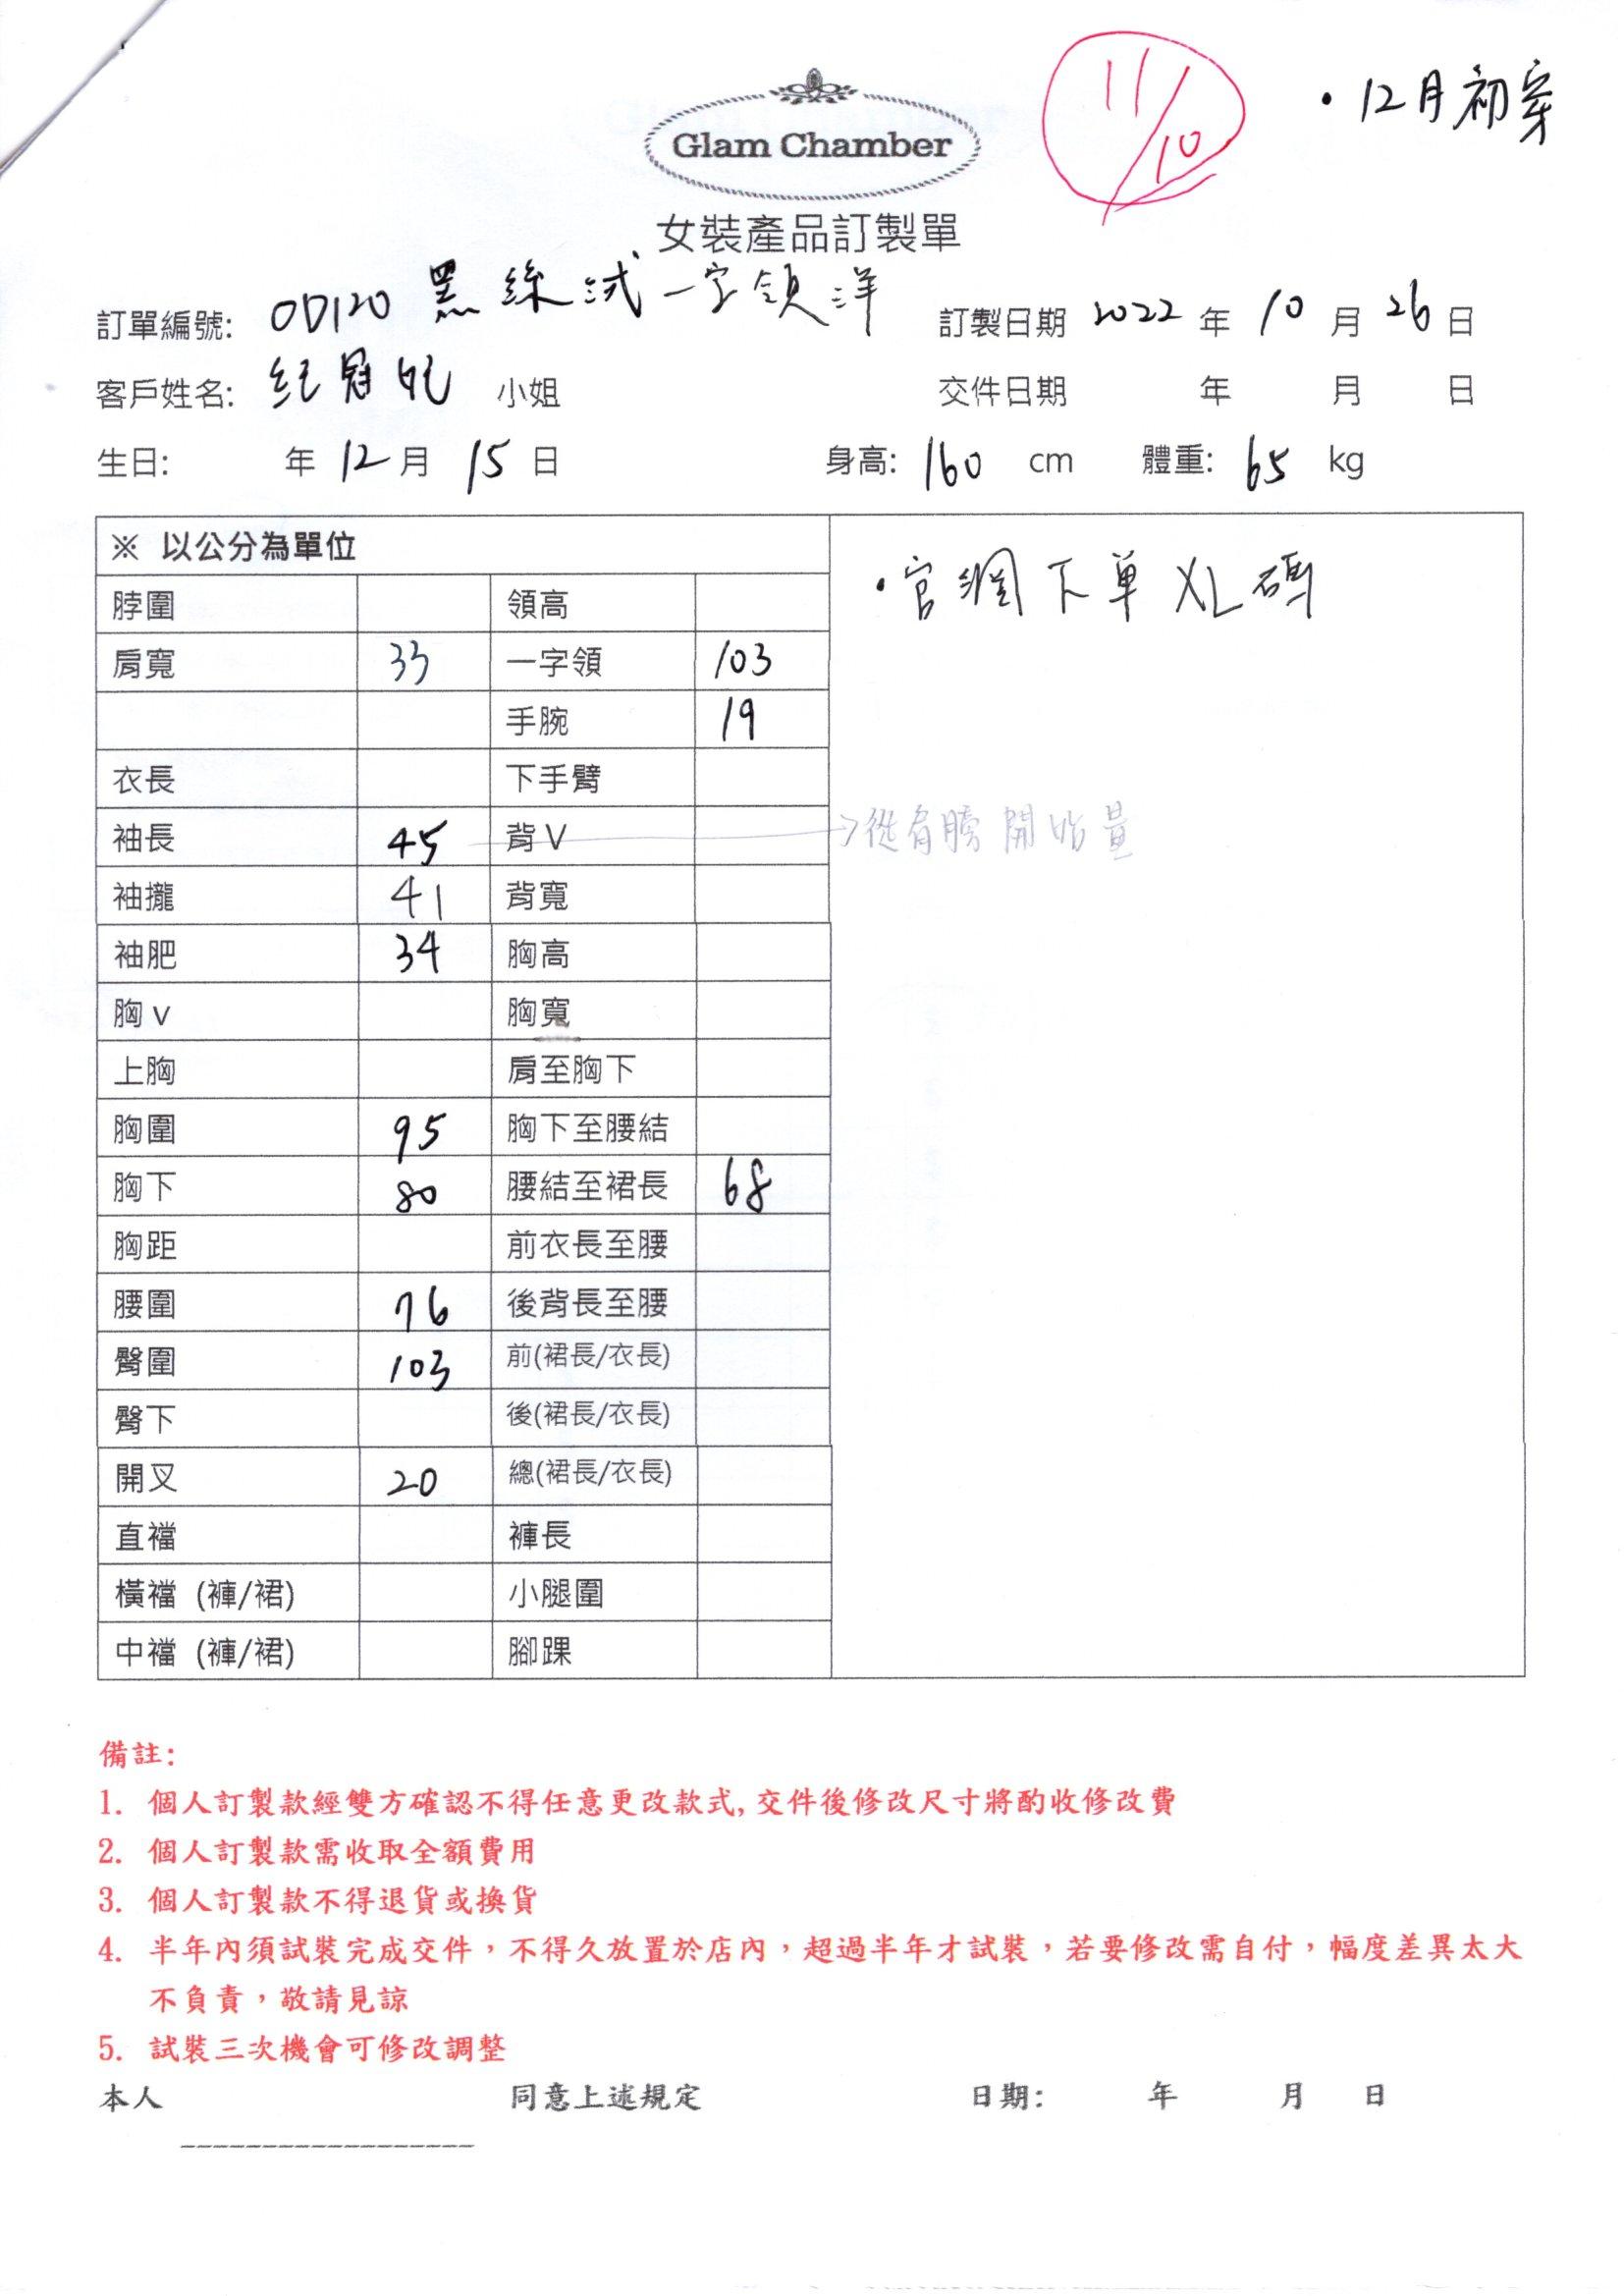 11/10
・12月初穿
Glam Chamber
女裝產品訂製單
訂單編號: OD120 黑絲絨一字領洋
訂製日期 2022 年 10 月 26 日
客戶姓名: 紀冠妃 小姐
交件日期 年 月 日
生日: 年 12 月 15 日
身高: 160 cm 體重: 65 kg
※ 以公分為單位
・官網下單 XL碼
脖圍 領高
肩寬 33 一字領 103
手腕 19
衣長 下手臂
袖長 45 背V →從肩膀開始量
袖攏 41 背寬
袖肥 34 胸高
胸v 胸寬
上胸 肩至胸下
胸圍 95 胸下至腰結
胸下 80 腰結至裙長 68
胸距 前衣長至腰
腰圍 76 後背長至腰
臀圍 103 前(裙長/衣長)
臀下 後(裙長/衣長)
開叉 20 總(裙長/衣長)
直襠 褲長
橫襠 (褲/裙) 小腿圍
中襠 (褲/裙) 腳踝
備註:
1. 個人訂製款經雙方確認不得任意更改款式, 交件後修改尺寸將酌收修改費
2. 個人訂製款需收取全額費用
3. 個人訂製款不得退貨或換貨
4. 半年內須試裝完成交件，不得久放置於店內，超過半年才試裝，若要修改需自付，幅度差異太大
不負責，敬請見諒
5. 試裝三次機會可修改調整
本人 同意上述規定 日期: 年 月 日